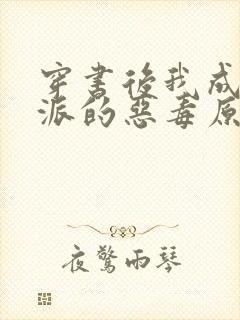 穿书后我成
派的恶毒原
夜惊雨琴